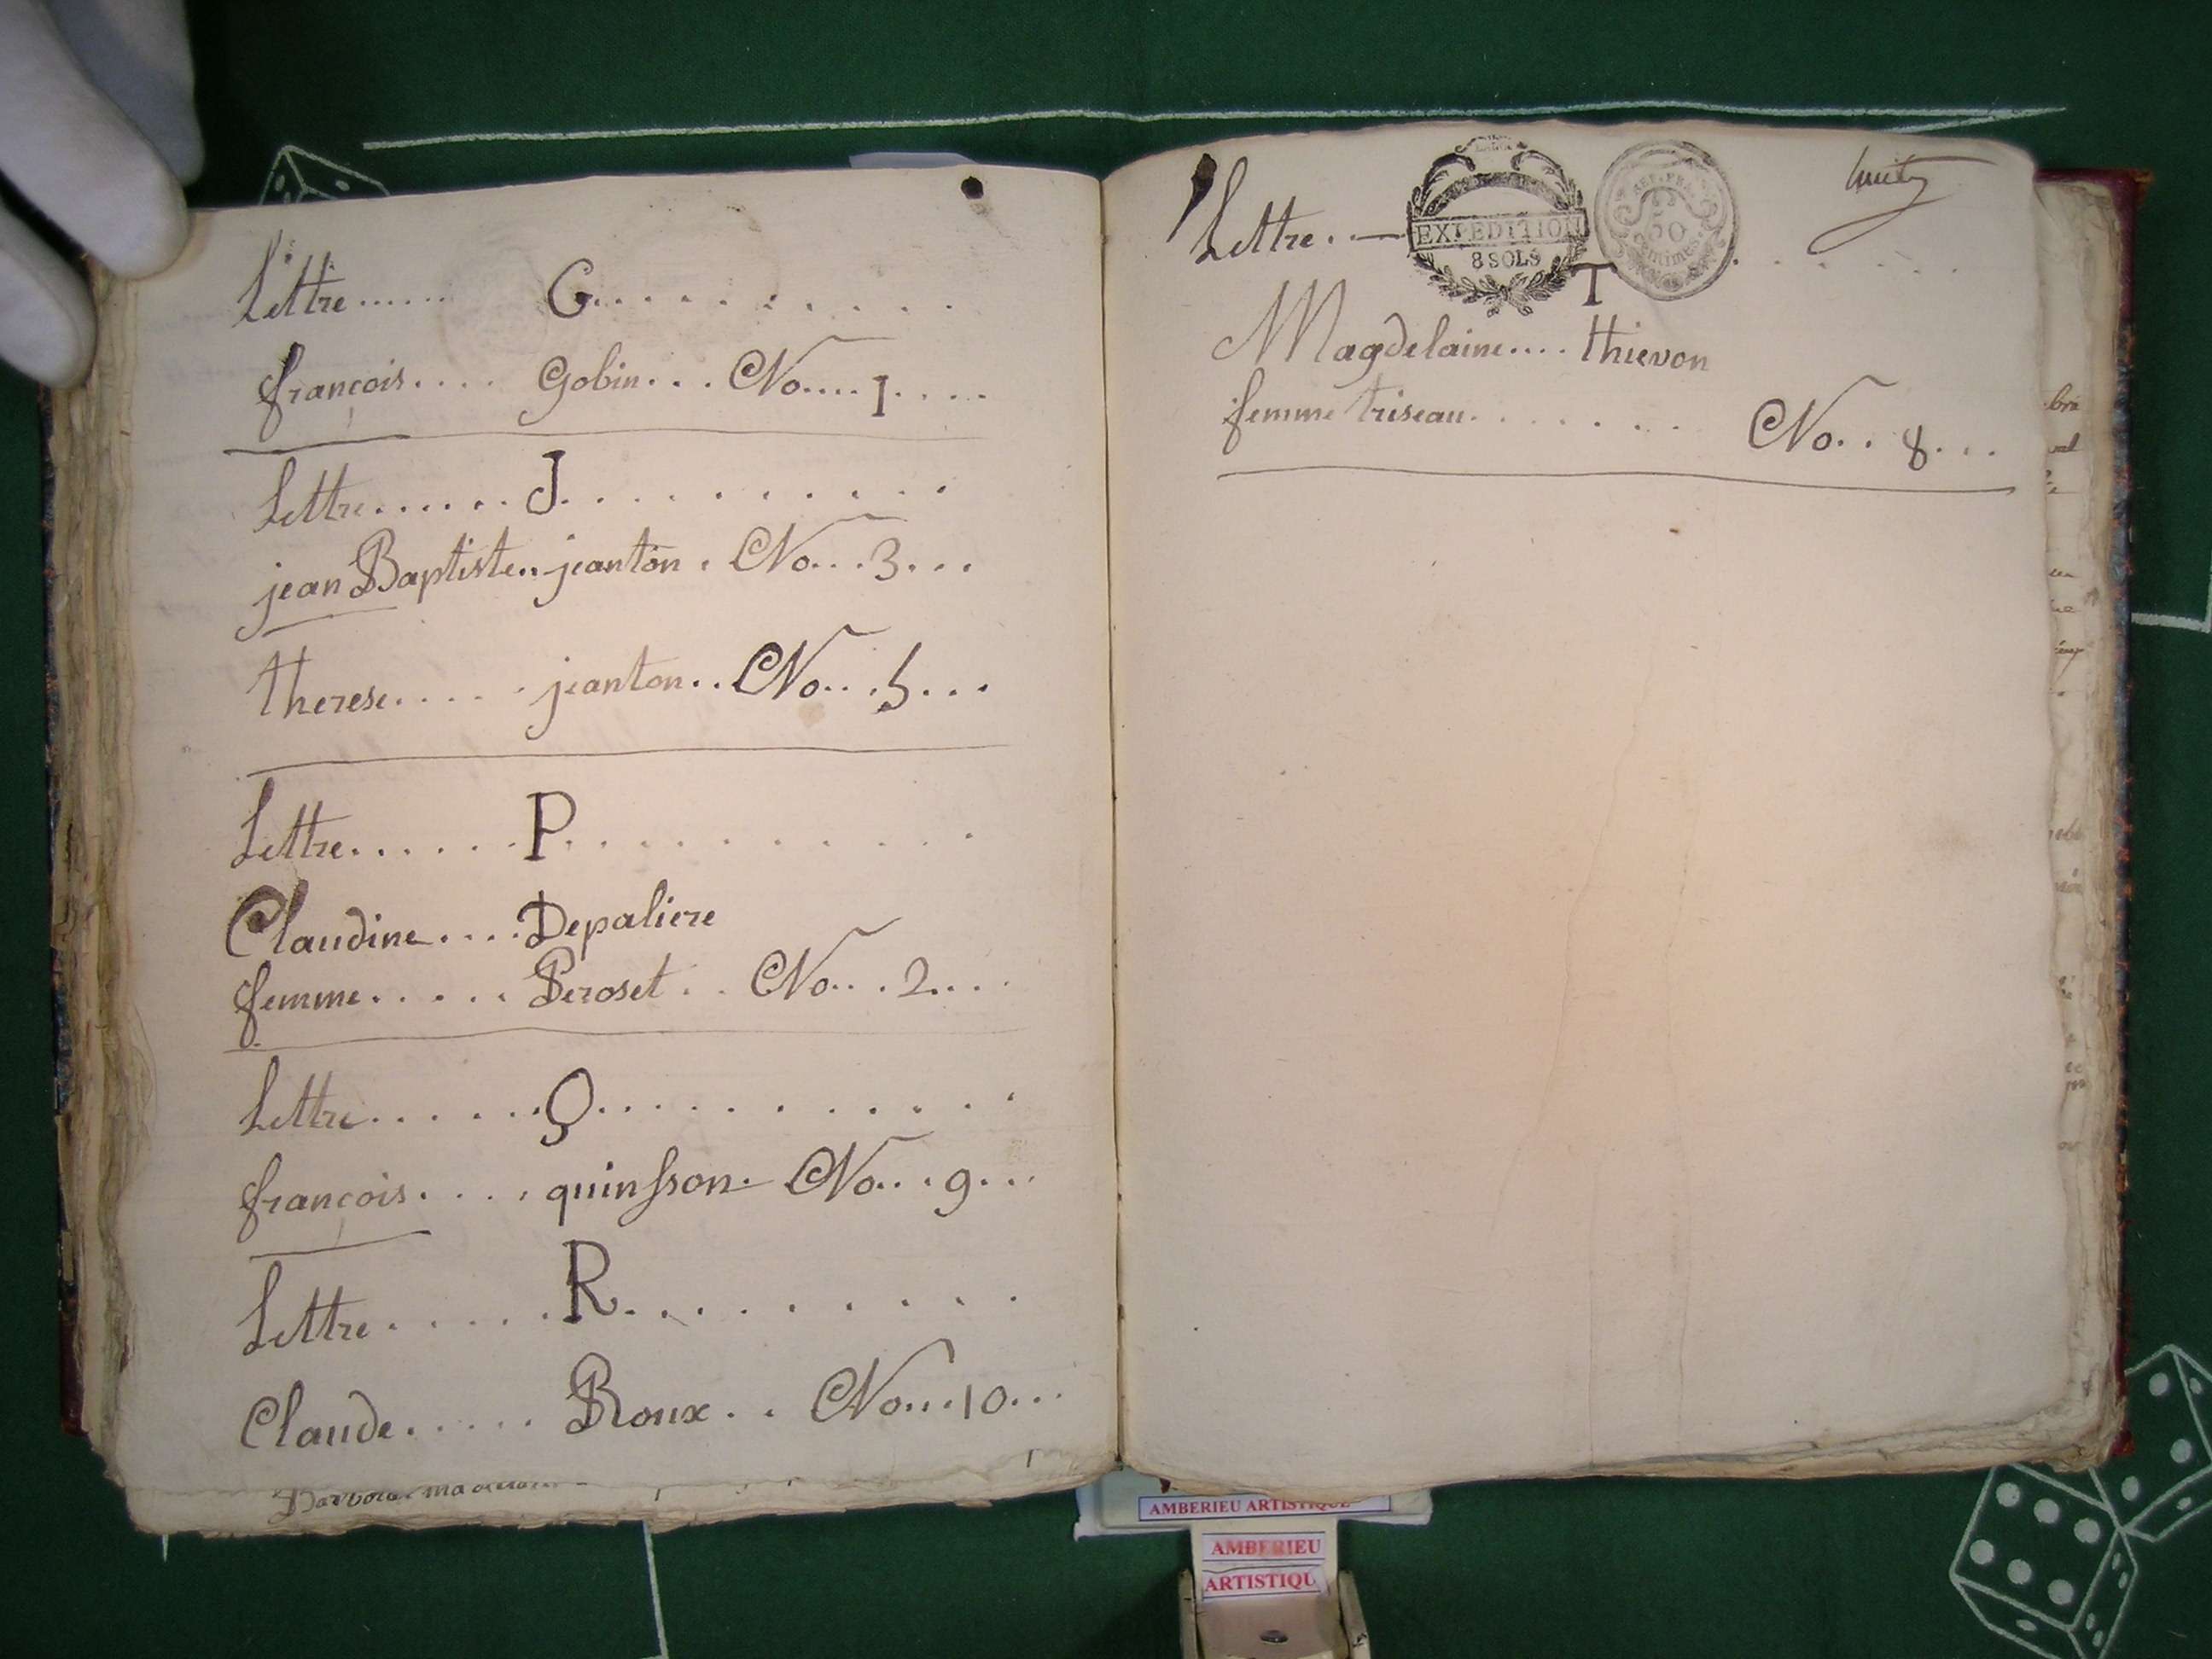 Lettre...... G..........
françois.... Gobin... No....1....
Lettre...... J..........
jean Baptiste.. jeanton. No...3...
therese..... jeanton.. No...5...
Lettre...... P..........
Claudine.... Depaliere
femme...... Peroset.. No...2....
Lettre...... Q..........
françois..... quinsson. No...9...
Lettre...... R..........
Claude...... Roux.. No...10...
huit
Lettre.—
EXPEDITION
8 SOLS
REP. FRA
50
Centimes
T
Magdelaine.... thievon
femme triseau....... No.. 8...
AMBERIEU ARTISTIQUE
AMBERIEU
ARTISTIQU